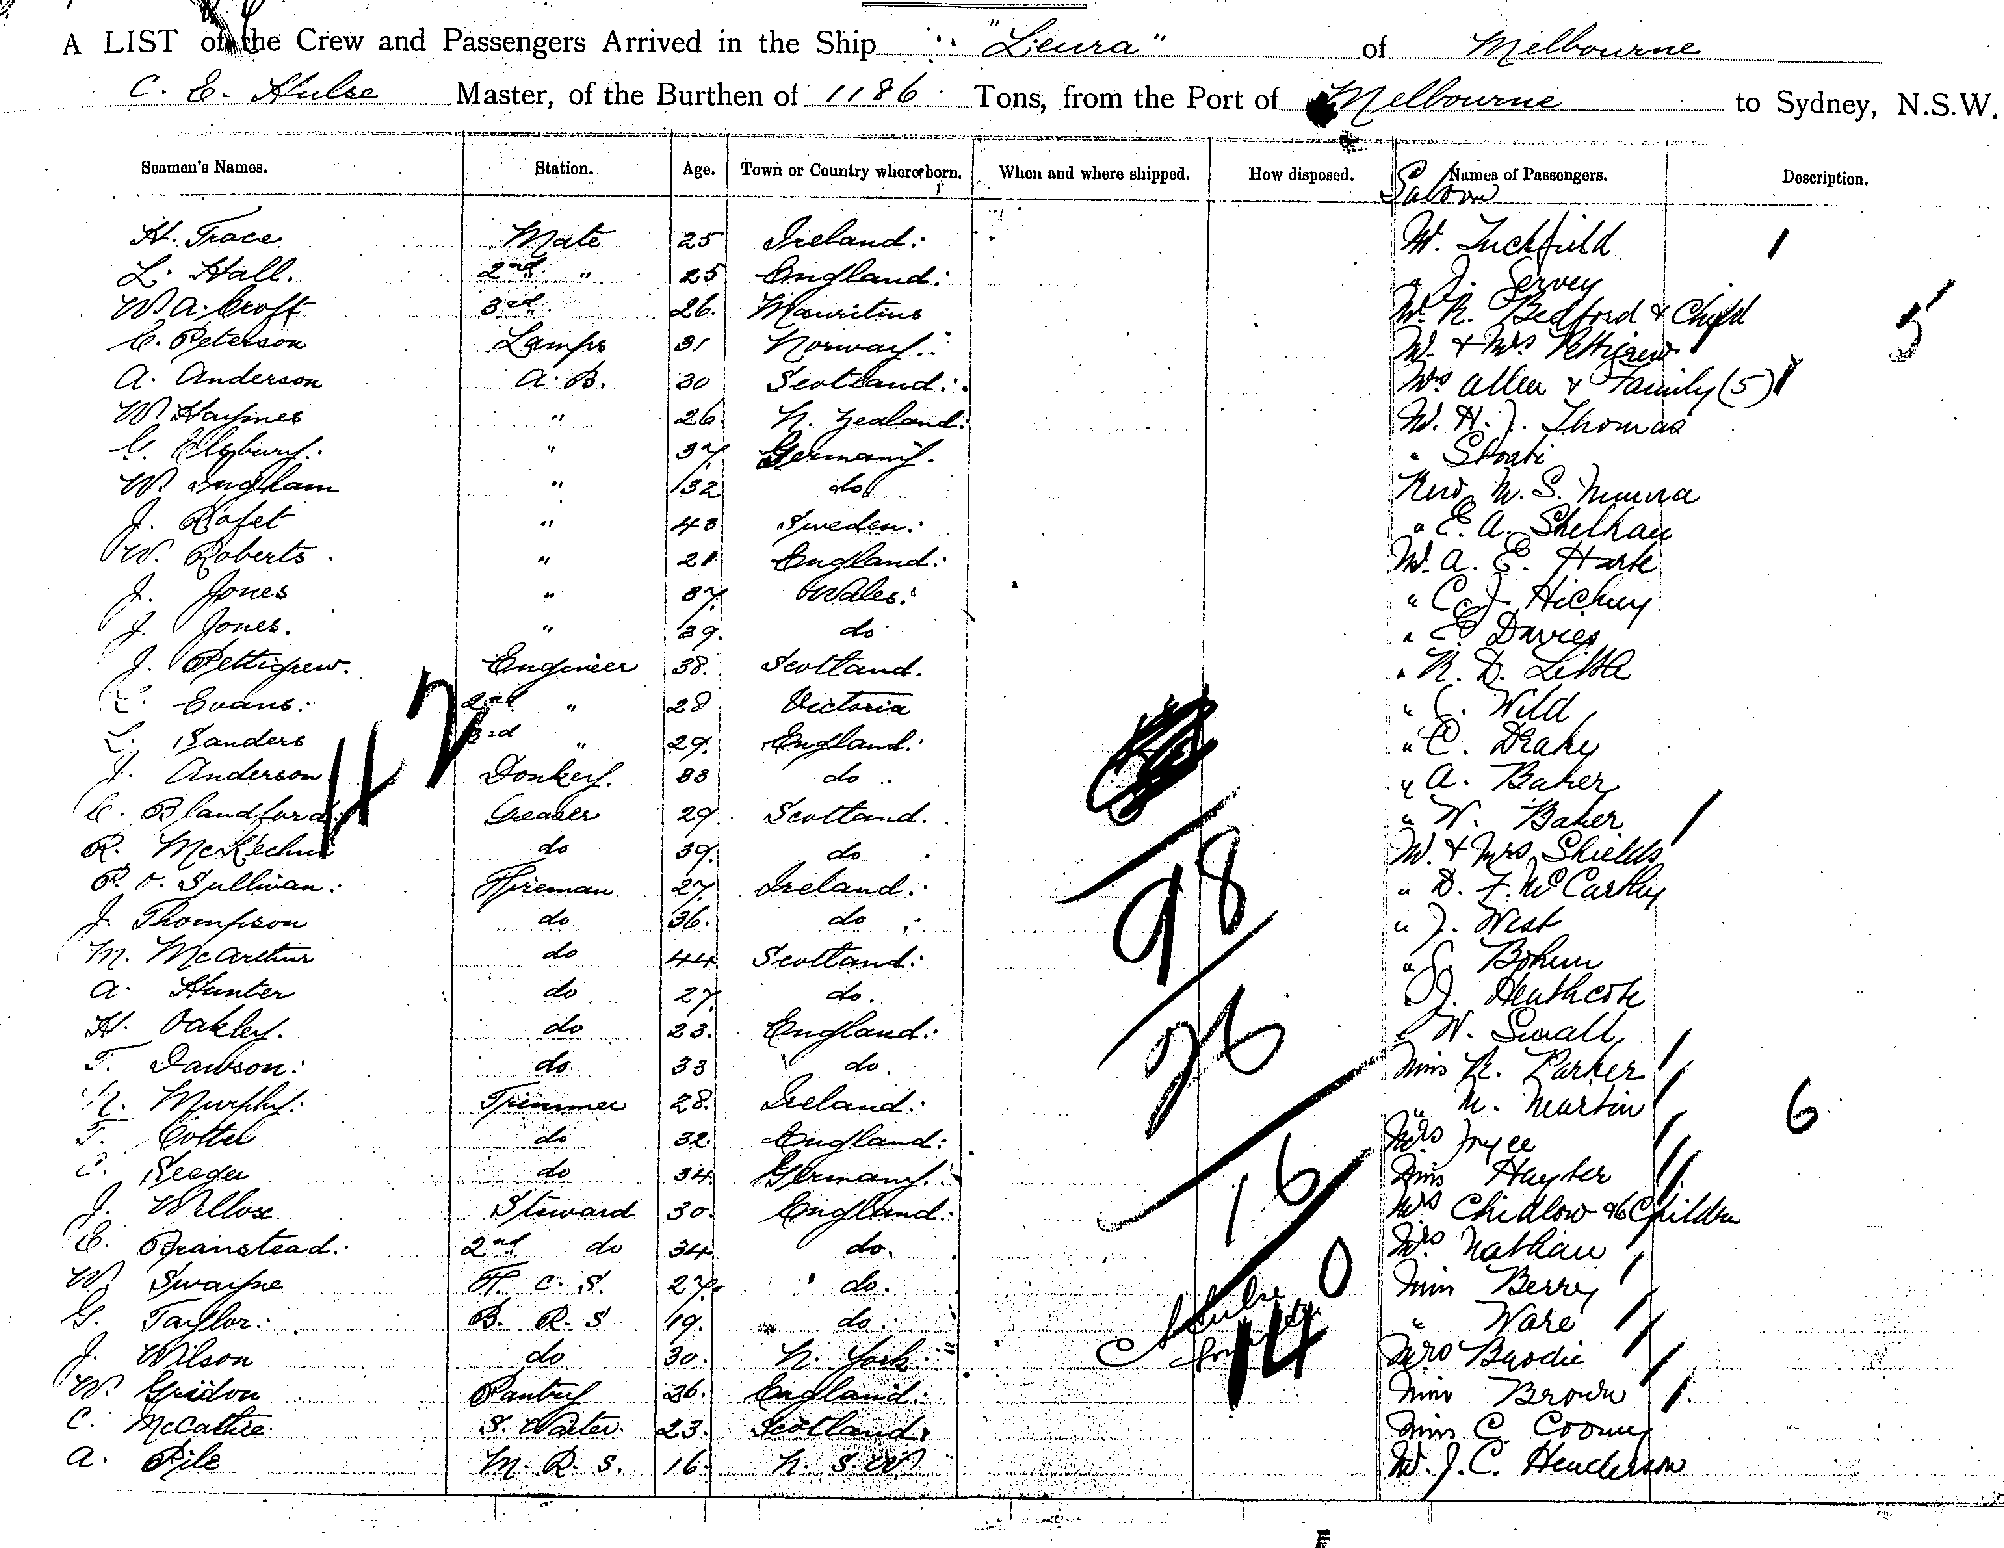 A LIST of the Crew and Passengers Arrived in the Ship "Leura" of Melbourne
C. E. Hulse Master, of the Burthen of 1186 Tons, from the Port of Melbourne to Sydney, N.S.W.
Seamen's Names. Station. Age. Town or Country where born. When and where shipped. How disposed. Names of Passengers. Description.
Saloon
H. Trace Mate 25 Ireland W. Tuckfield
L. Hall. 2nd " 25 England " J. Servey
W A. Croft 3rd 26 Mauritius R. Bedford & Child 5
C. Peterson Lamps 31 Norway & Mrs Pettigrew
A. Anderson A. B. 30 Scotland Mrs Allen & Family (5)
W. Haymes " 26 N. Zealand H. J. Thomas
" 37 Germany "
W. Ingham " 32 do Revd
J. " 43 Sweden " E. A.
W. Roberts " 21 England A. E.
J. Jones " 37 Wales " C. J. Hickey
J. Jones. " 39 do " E. Davies
J. Pettigrew. Engineer 38 Scotland " R. D. Little
Evans 2nd " 28 Victoria " C. Wild
L. Sanders 3rd " 29 England " C.
42
J. Anderson Donkey 33 do " A. Baker
C. Blandford Greaser 29 Scotland " W. Baker
R. McKechnie do 39 do & Mrs Shields
P. O. Sullivan Fireman 27 Ireland " D. F. McCarthy
98
J. Thompson do 36 do " J. West
M. McArthur do 44 Scotland
A. Hunter do 27 do. J. Heathcote
H. Oakley. do 23 England W.
26
T. Dawson do 33 do. Miss R. Parker
Murphy Trimmer 28 Ireland " M. Martin 6
T. do 32 England Mrs Joyce
Seeger do 34 Germany Miss Hayter
16
J. Willox Steward 30 England Mrs Chidlow & 6 Children
C. Branstead 2nd do 34 do. Mrs Nathan
0
W. Swayne F. C. S. 27 do. Miss Berry
G. Taylor B. R. S 19 do. " Ware
J. Wilson do 30 N. York Mrs Brodie
14
W. Pantry 26 England Miss Brown
C. McCathie S. Waiter 23 Scotland Miss C. Cooney
A. Pile M. R. S. 16 N. S. W J. C. Henderson